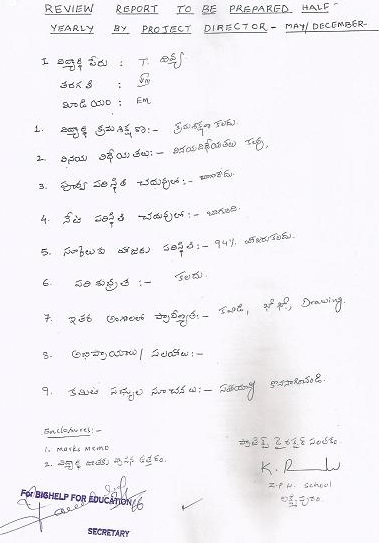 REVIEW REPORT TO BE PREPARED HALF-
YEARLY BY PROJECT DIRECTOR - MAY/DECEMBER-
I విద్యార్థి పేరు : T. దివ్య
తరగతి : VIII
మీడియం : EM
1. విద్యార్థి క్రమశిక్షణ :- క్రమశిక్షణ కలదు.
2. వినయ విధేయతలు:- వినయవిధేయతలు కలవు,
3. పూర్వ పరిస్థితి చదువులో:- బాగాలేదు.
4. నేటి పరిస్థితి చదువులో:- బాగుంది.
5. స్కూలుకు హాజరు పరిస్థితి:- 94% హాజరుకలదు.
6. పరిశుభ్రత :- కలదు.
7. ఇతర అంశాలలో ప్రావీణ్యత:- కబడి, ఖోఖో, Drawing.
8. అభిప్రాయాలు/ సలహాలు:-
9. కమిటీ సభ్యుల సూచనలు:- సహాయాన్ని కొనసాగించండి.
Enclosures:-
1. Marks Memo
2. విద్యార్థి జాతకు వ్రాసిన ఉత్తరం.
ప్రాజెక్ట్ డైరక్టర్ సంతకం.
Z.P.H. School
లక్ష్మీపురం.
For BIGHELP FOR EDUCATION
SECRETARY